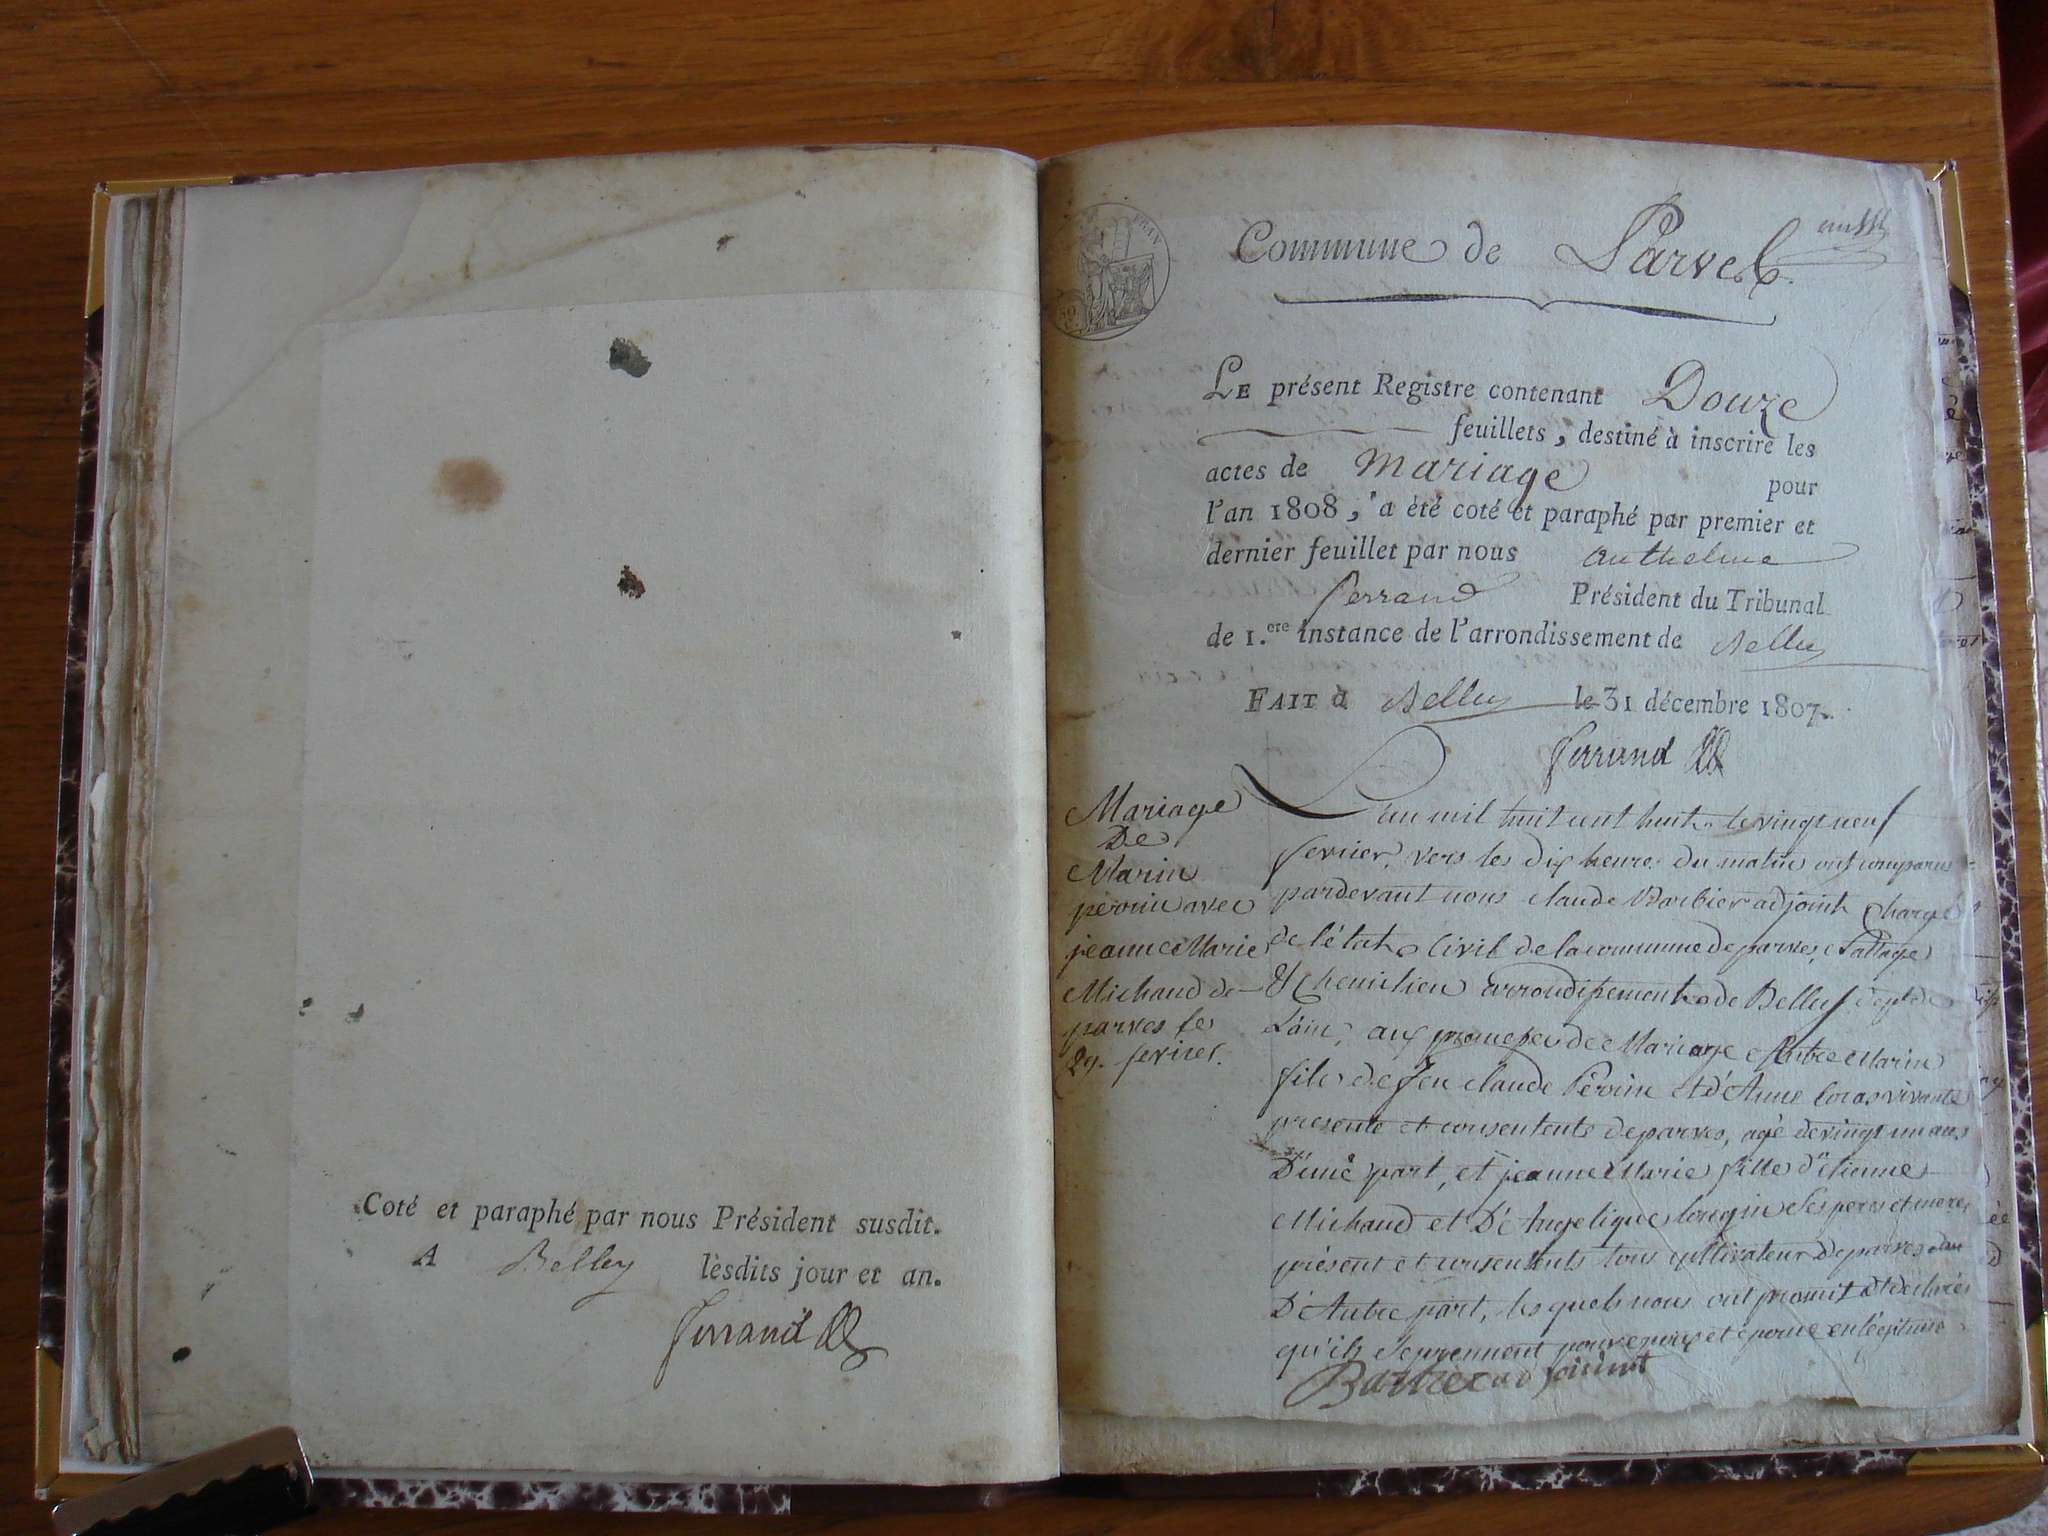 Coté et paraphé par nous Président susdit.
A Belley lesdits jour et an.
Ferrand
FRAN
50
Commune de Parves
Le présent Registre contenant Douze
feuillets, destiné à inscrire les
actes de mariage pour
l'an 1808, a été coté et paraphé par premier et
dernier feuillet par nous anthelme
ferrand Président du Tribunal
de 1.ere instance de l'arrondissement de Belley
Fait à Belley le 31 décembre 1807.
ferrand
Mariage
De
Marin
peronin avec
jeanne Marie
Michaud de
parves le
29. fevrier.
L'an mil huit cent huit le vingt neuf
fevrier, vers les dix heure du matin ont comparus
pardevant nous claude Barbier adjoint Chargé
de l'état Civil de la commune de parves,
arrondissement de Belley dept de
L'ain, aux promesses de Mariage Entre Marin
fils de feu claude et d'Anne vivante
presente et consentente de parves, agé de vingt un ans
D'une part, et jeanne Marie fille d'etienne
Michaud et D'Angelique ses peres et mere
présent et consentents tous cultivateur de parves
D'Autre part, lesquels nous ont promit et déclarés
qu'ils se prennent pour epoux et epouse en légitime
Barbier adjoint